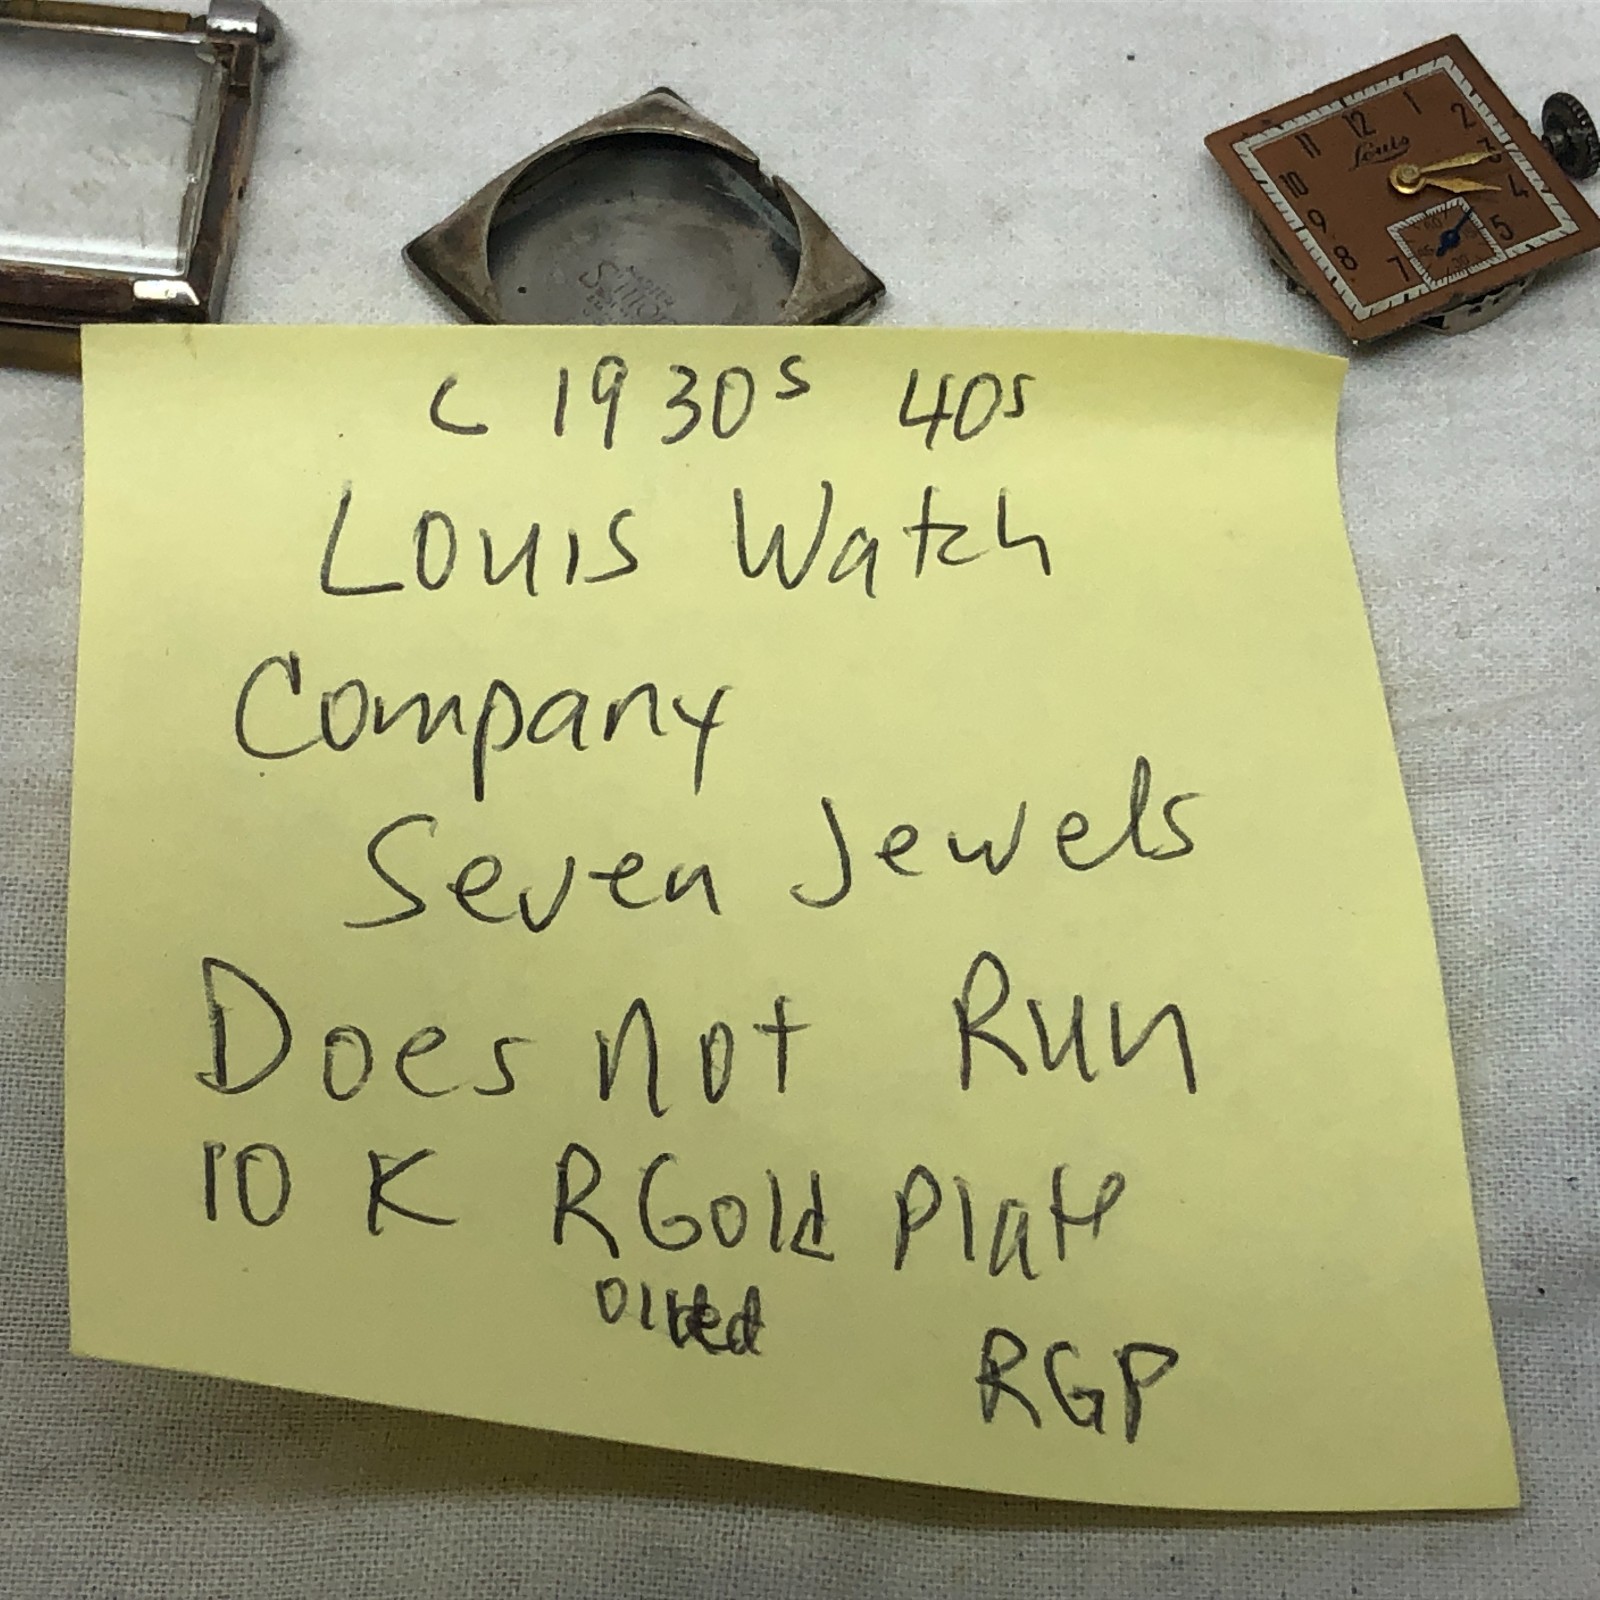 12 1 2
11 Louis 3
10 4
9 5
8 7
60
c 1930s 40s
Louis Watch
Company
Seven Jewels
Does not Run
10 K R Gold Plate
RGP